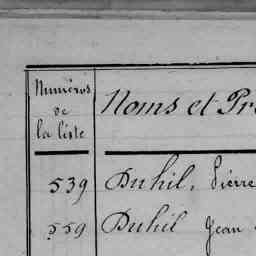 Numéros
de
la liste
Noms et Pr
539 Duhil, Pierre
559 Duhil Jean